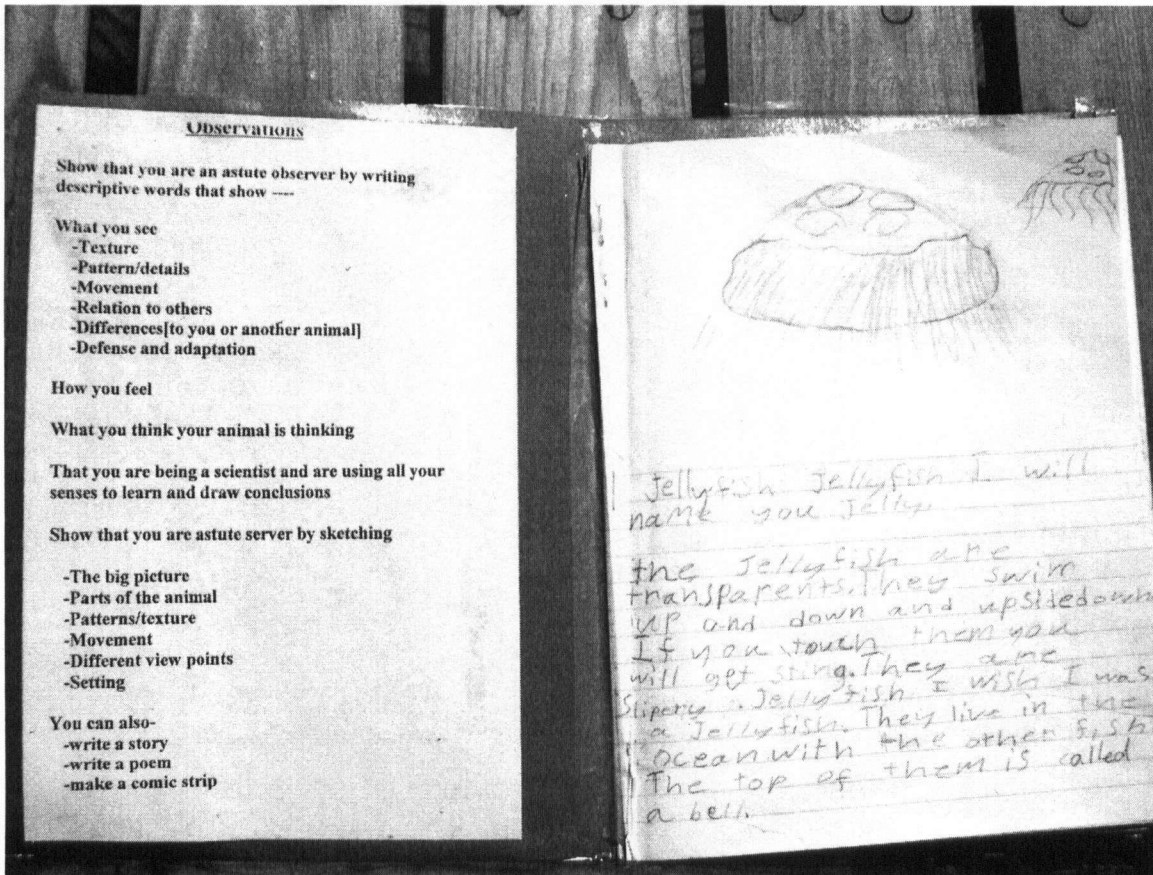 Observations
Show that you are an astute observer by writing
descriptive words that show ----
What you see
-Texture
-Pattern/details
-Movement
-Relation to others
-Differences[to you or another animal]
-Defense and adaptation
How you feel
What you think your animal is thinking
That you are being a scientist and are using all your
senses to learn and draw conclusions
Show that you are astute server by sketching
-The big picture
-Parts of the animal
-Patterns/texture
-Movement
-Different view points
-Setting
You can also-
-write a story
-write a poem
-make a comic strip
Jellyfish Jellyfish I will
name you Jelly.
the Jellyfish are
transparents. They swim
up and down and upsidedown
If you touch them you
will get sting. They are
Slipery. Jellyfish I wish I was
a Jellyfish. They live in the
ocean with the other fish
The top of them is called
a bell.